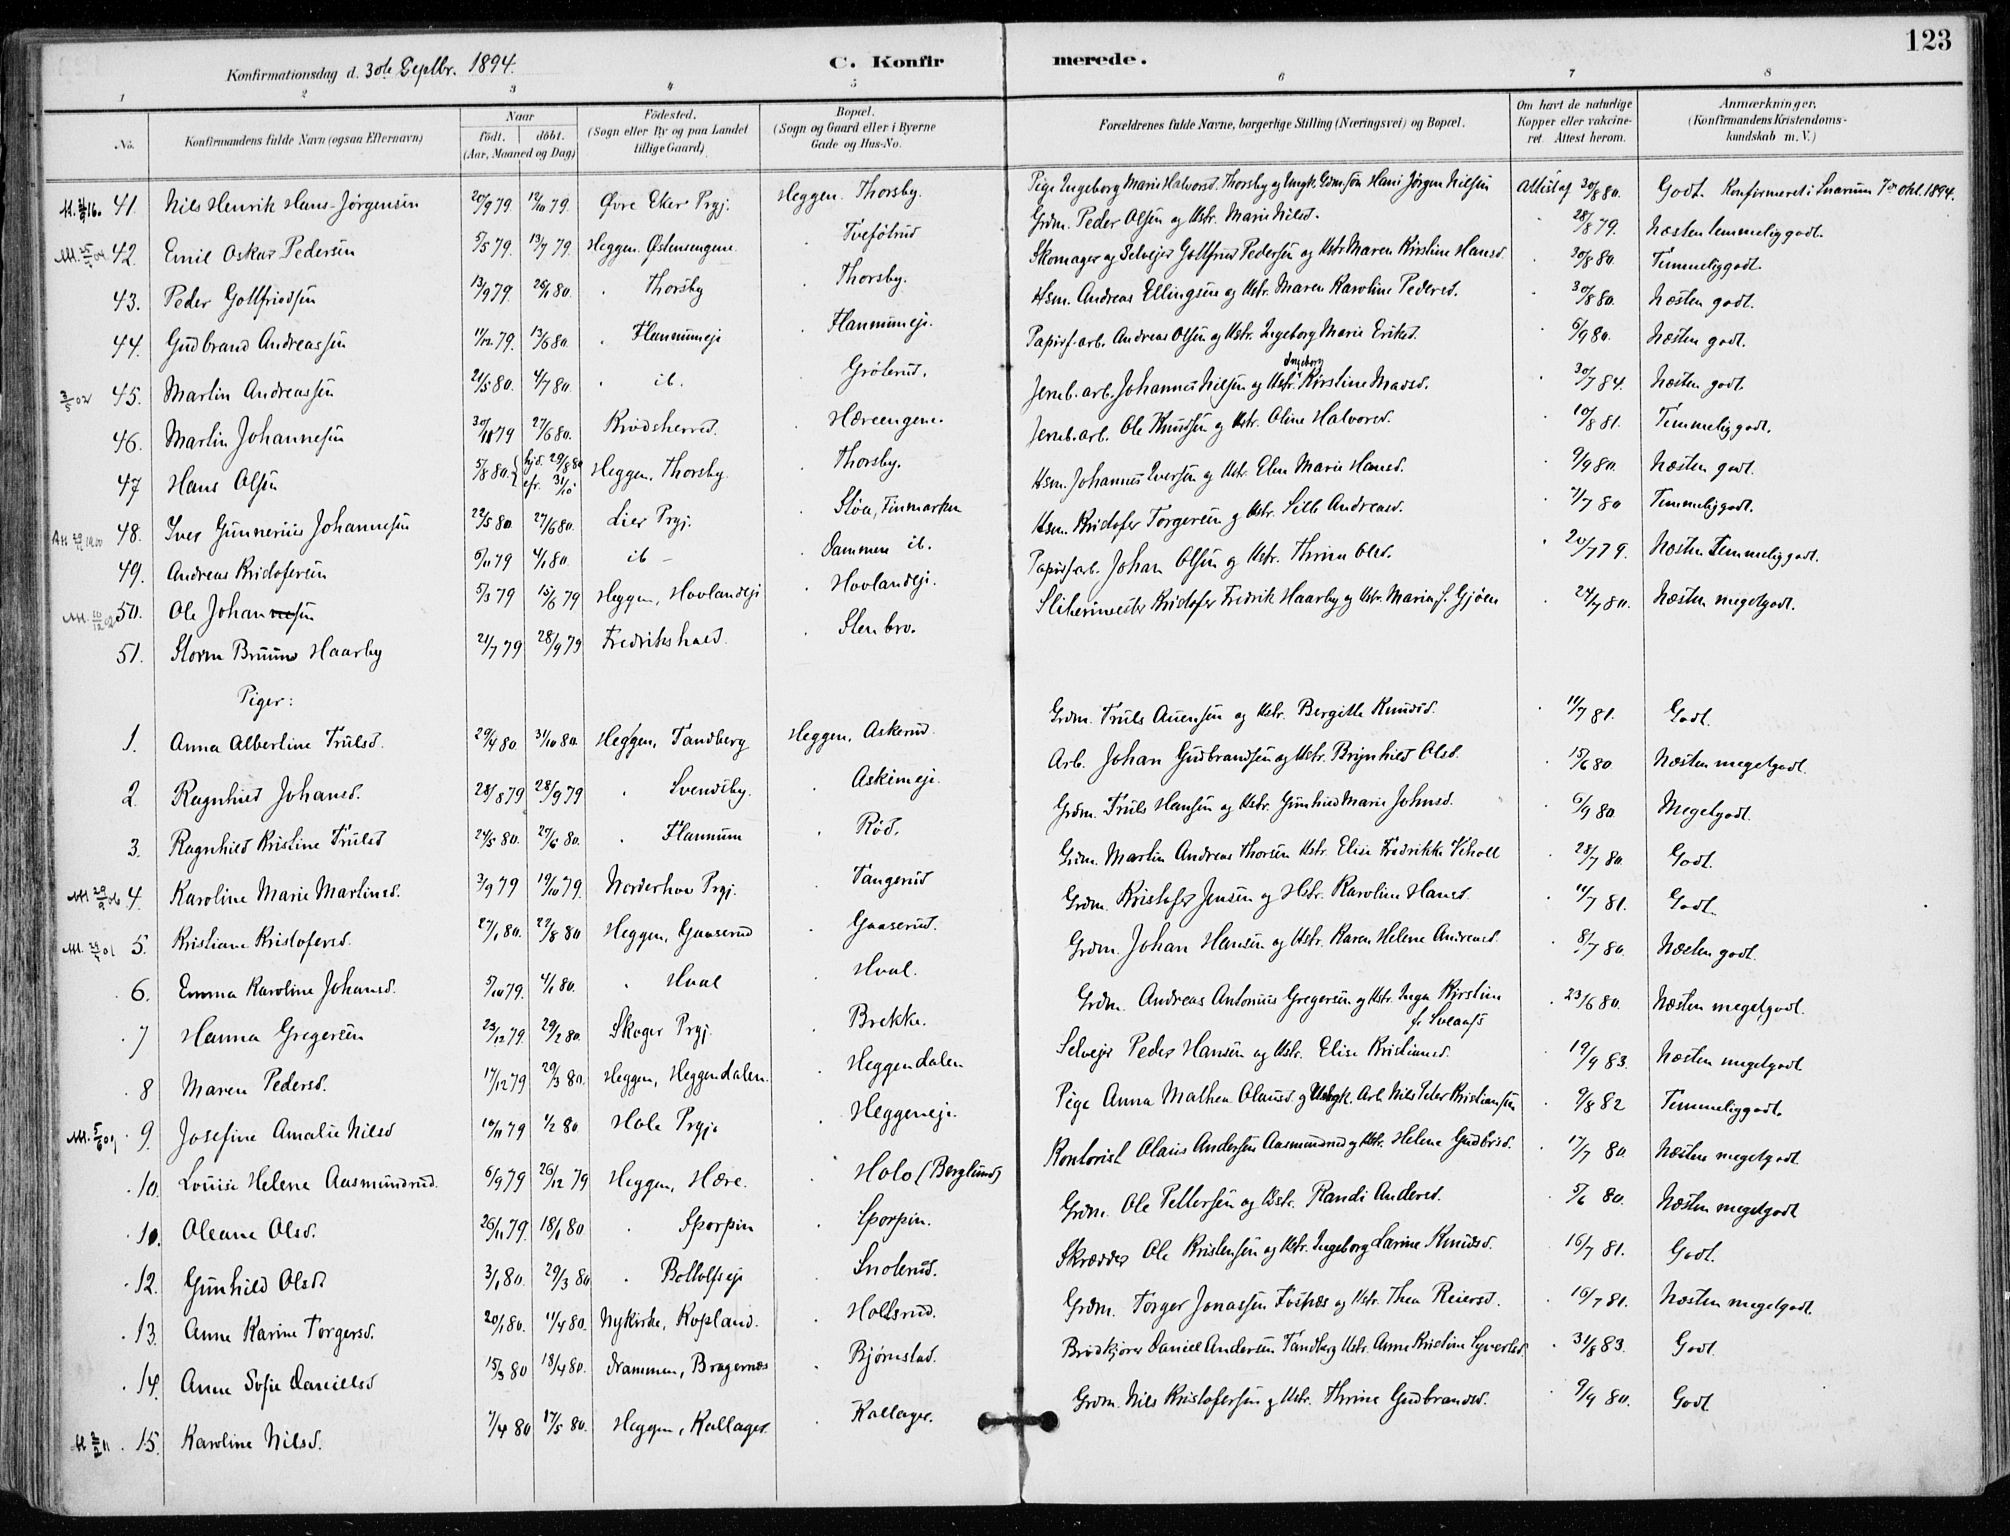 123
Konfirmationsdag d. 30te Septbr. 1894.
C. Konfirmerede.
1 2 3 4 5 6 7 8
No. Konfirmandens fulde Navn (ogsaa Efternavn) Naar født. døbt. (Aar, Maaned og Dag) Fødested. (Sogn eller By og paa Landet tillige Gaard) Bopæl. (Sogn og Gaard eller i Byerne Gade og Hus-No. Forældrenes fulde Navne, borgerlige Stilling (Næringsvei) og Bopæl. Om havt de naturlige Kopper eller vakcineret. Attest herom. Anmærkninger. (Konfirmandens Kristendomskundskab m. V.)
41. Nils Henrik Hans-Jörgensen 20/9 79. 12/10 79. Øvre Eker Prgj. Heggen. Thorsby. Pige Ingeborg Marie Halvorsd. Thorsby og Ungk. Grdm.søn Hans Jørgen Nilsen Attest af 30/8 80. Godt. Konfirmeret i Snarum 7de okt. 1894.
42. Emil Oskar Pedersen 5/5 79. 13/7 79. Heggen. Østensengene. Tveføtrud Grdm. Peder Olsen og Hstr. Marie Nilsd. 28/8 79. Næsten temmelig godt.
43. Peder Gottfriedsen 13/9 79. 26/1 80. Thorsby Thorsby. Skomager og Selvejer Gottfried Pedersen og Hstr Maren Kirstine Hansd. 30/8 80. Temmelig godt.
44. Gudbrand Andreassen 11/12 79. 13/6 80. Flannumeje Flannumeje. Hsm. Andreas Ellingsen og Hstr. Maren Karoline Pedersd. 30/8 80. Næsten godt.
45. Martin Andreassen 21/5 80. 4/7 80. ib. Grøterud. Papirf.arb. Andreas Olsen og Hstr. Ingeborg Marie Eriksd. 6/9 80. Næsten godt.
46. Martin Johannesen 30/11 79 27/6 80. Krødsherred. Hæreengene. Jernb.arb. Johannes Nilsen og Hstr. Ingeborg Kirstine Madsd. 30/7 84. Næsten godt.
47 Hans Olsen 5/8 80. hjd. 29/8 80 efr. 31/10 Heggen, Thorsby. Thorsby. Jernb.arb. Ole Knudsen og Hstr. Oline Halvorsd. 10/8 81. Temmelig godt.
48. Iver Gunnerius Johannesen 22/5 80. 27/6 80. Lier Prgj. Støa, Finmarken Hsm. Johannes Iversen og Hstr. Elen Marie Hansd. 9/9 80. Næsten godt.
49. Andreas Kristofersen 6/11 79 4/1 80. ib - Dammen ib. Hsm. Kristofer Torgersen og Hstr. Sille Andreasd. 7/7 80 Temmelig godt.
50. Ole Johannesen 5/3 79 15/6 79 Heggen, Hovlandeje Hovlandeje. Papirf.arb. Johan Olsen og Hstr. Thrine Olsd. 20/7 79. Næsten Temmelig godt.
51. Storm Bruun Haarby 21/7 79 28/9 79 Fredrikshald. Stenbro. Sliberimester Kristofer Fredrik Haarby og Hstr. Marie f. Gjøen 24/7 80. Næsten meget godt.
Piger:
1. Anna Albertine Trulsd. 29/4 80. 31/10 80. Heggen, Tandberg Heggen, Askerud. Grdm. Truls Auensen og Hstr. Bergitte Knudsd. 11/7 81. Godt.
2. Ragnhild Johansd. 28/8 79 28/9 79 Svendsby. Askimeje. Arb. Johan Gudbrandsen og Hstr. Brynhild Olsd. 15/6 80 Næsten meget godt.
3. Ragnhild Kristine Trulsd 24/5 80. 27/6 80. Flannum Rød. Grdm. Truls Hansen og Hstr. Gunhild Marie Johnsd. 6/9 80. Meget godt.
4. Karoline Marie Martinsd. 3/9 79 19/10 79. Norderhov Prgj. Tangerud Grdm. Martin Andreas Thorsen Hstr. Elise Fredrikke Viholt 28/7 80 Godt.
5. Kristiane Kristofersd. 27/1 80. 22/8 80 Heggen, Gaaserud Gaaserud. Grdm. Kristofer Jensen og Hstr. Karoline Hansd. 11/7 81. Godt.
6. Emma Karoline Johansd. 5/10 79. 4/1 80. Hval Hval. Grdm. Johan Hansen og Hstr. Karen Helene Andreasd. 8/7 80 Næsten godt.
7 Hanna Gregersen 23/12 79. 29/2 80. Skoger Prgj. Brekke. Grdm. Andreas Antonius Gregersen og Hstr. Inga Kirstine f. Sveaass 23/6 80. Næsten meget godt.
8 Maren Pedersd. 17/12 79 29/3 80. Heggen, Heggendalen. Heggendalen Selvejer Peder Hansen og Hstr. Elise Kristiansd. 19/9 83. Næsten meget godt.
9. Josefine Amalie Nilsd 10/11 79 1/2 80 Hole Prgj. Heggeneje. Pige Anna Mathea Olausd. og Ungk. Arb. Nils Peter Kristiansen 9/8 82 Temmelig godt.
10. Louise Helene Aasmundrud. 6/9 79 26/12 79 Heggen, Hære. Holo (Berglund) Kontorist Olaus Andersen Aasmundrud og Hstr. Helene Gudbrd. 17/7 80 Næsten meget godt.
10. Oleane Olsd. 26/11 79. 18/1 80. Sporpin Sporpin. Grdm. Ole Pettersen og Hstr. Randi Andersd. 5/6 80. Næsten meget godt
12. Gunhild Olsd 3/1 80. 29/3 80 Bottolfseje Snoterud. Skrædder Ole Kristensen og Hstr. Ingeborg Larine Knudsd. 16/7 81. Godt.
13. Anne Karine Torgersd. 20/1 80. 11/4 80. Nykirke, Kopland. Holtsrud. Grdm. Torger Jonassen Fosnæs og Hstr. Thea Reiersd. 16/7 81. Næsten meget godt.
14. Anne Sofie Danielsd 15/3 80 18/4 80. Drammen, Bragernæs Bjørnstad. Brødkjører Daniel Andersen Tandberg Hstr. Anne Kristine Syvertsd. 31/8 83. Godt.
15. Karoline Nilsd. 7/4 80 17/5 80. Heggen, Kallager. Kallager. Grdm. Nils Kristofersen og Hstr. Thrine Gudbrandsd. 9/9 80. Godt